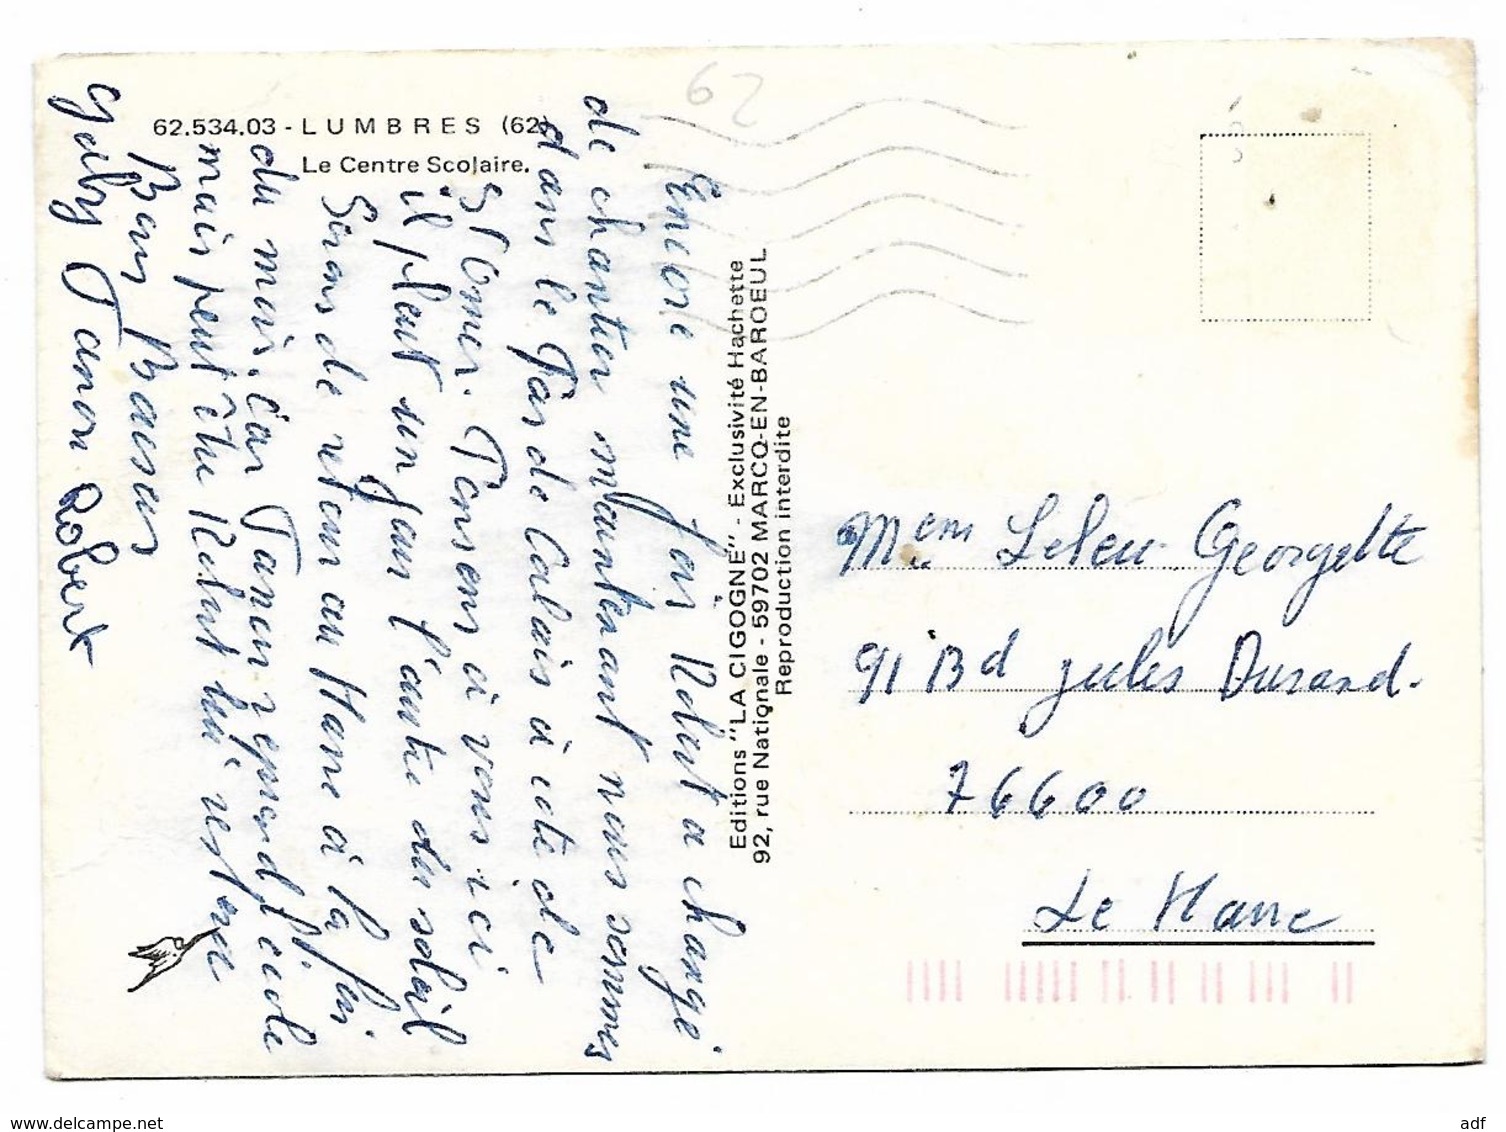 62
62.534.03 - LUMBRES (62)
Le Centre Scolaire.
Encore une fois Robert a changé
de chantier maintenant nous sommes
dans le Pas de Calais à coté de
St Omer. Pensons à vous ici
il pleut un jour l'autre du soleil
Serons de retour au Havre à la fin
du mois. Car reprend l'école
mais peut être Robert lui restera
Bons Baisers
Gaby Robert
Editions "LA CIGOGNE" - Exclusivité Hachette
92, rue Nationale - 59702 MARCQ-EN-BAROEUL
Reproduction interdite
Leleu Georgette
91 Bd Jules Durand.
76600
Le Havre
www.delcampe.net
adf